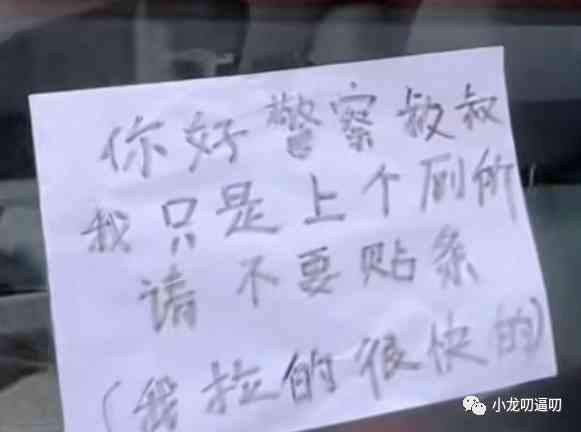 你好警察叔叔
我只是上个厕所
请不要贴条
(我拉的很快的)
小龙叨逼叨